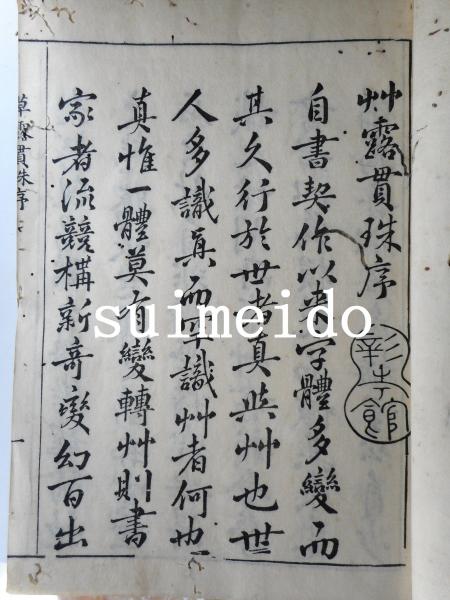 艸露貫珠序
自書契作以来字體多變而
其久行於世者真與艸也世
人多識真而罕識艸者何也
真惟一體莫有變轉艸則書
家者流競構新奇變幻百出
彰考館
草露貫珠序
一
suimeido